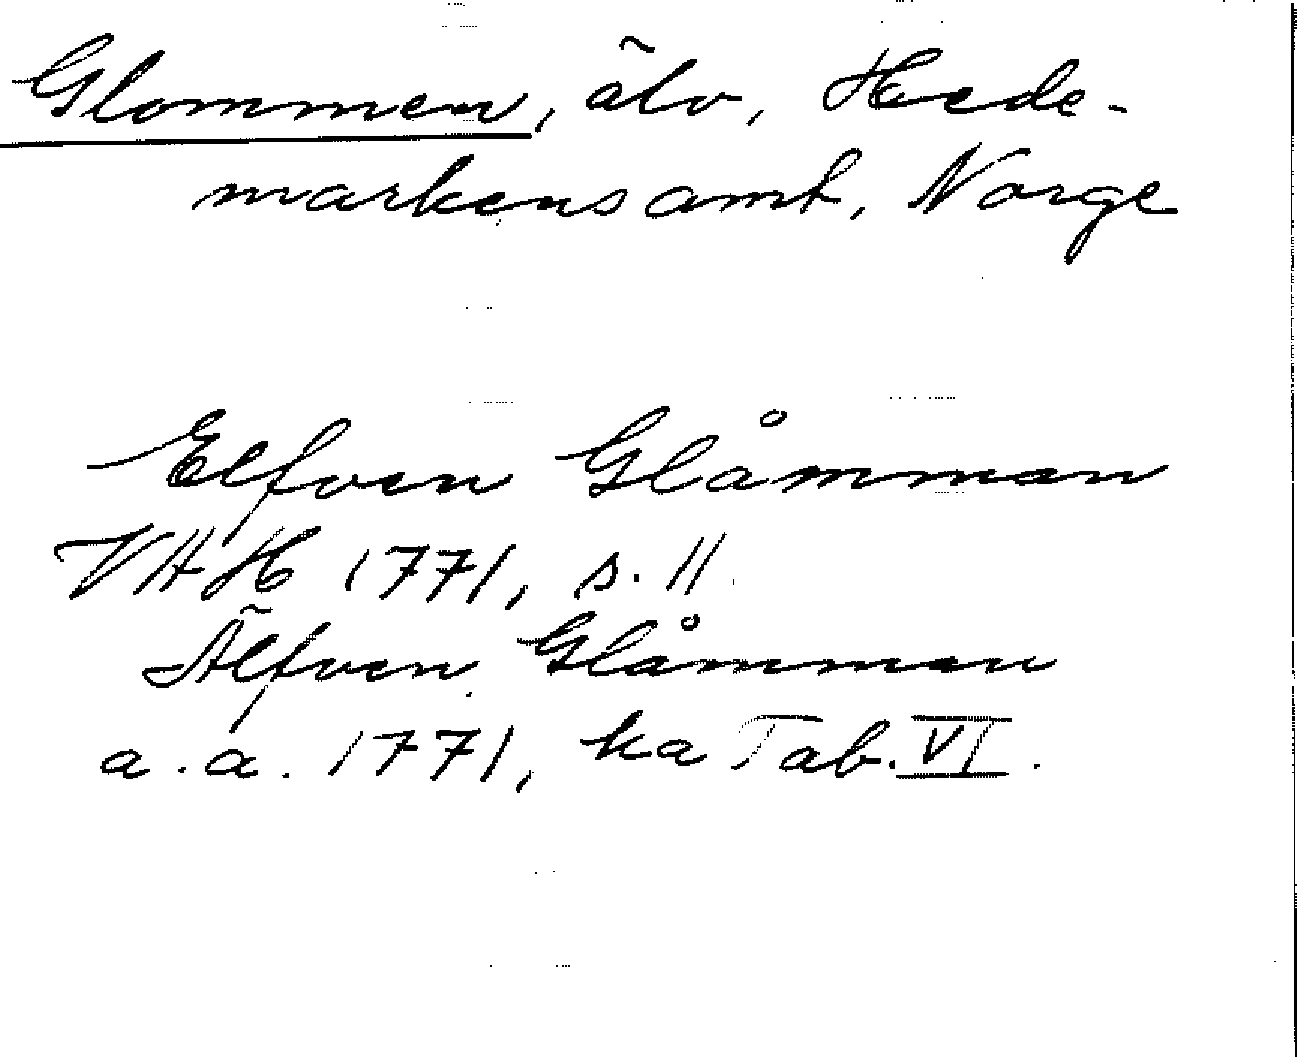 Glommen, älv, Hede-
markens amt, Norge
Elfven Glåmman
VAH 1771, s. 11
Älfven Glåmman
a.a. 1771, ka Tab. VI.